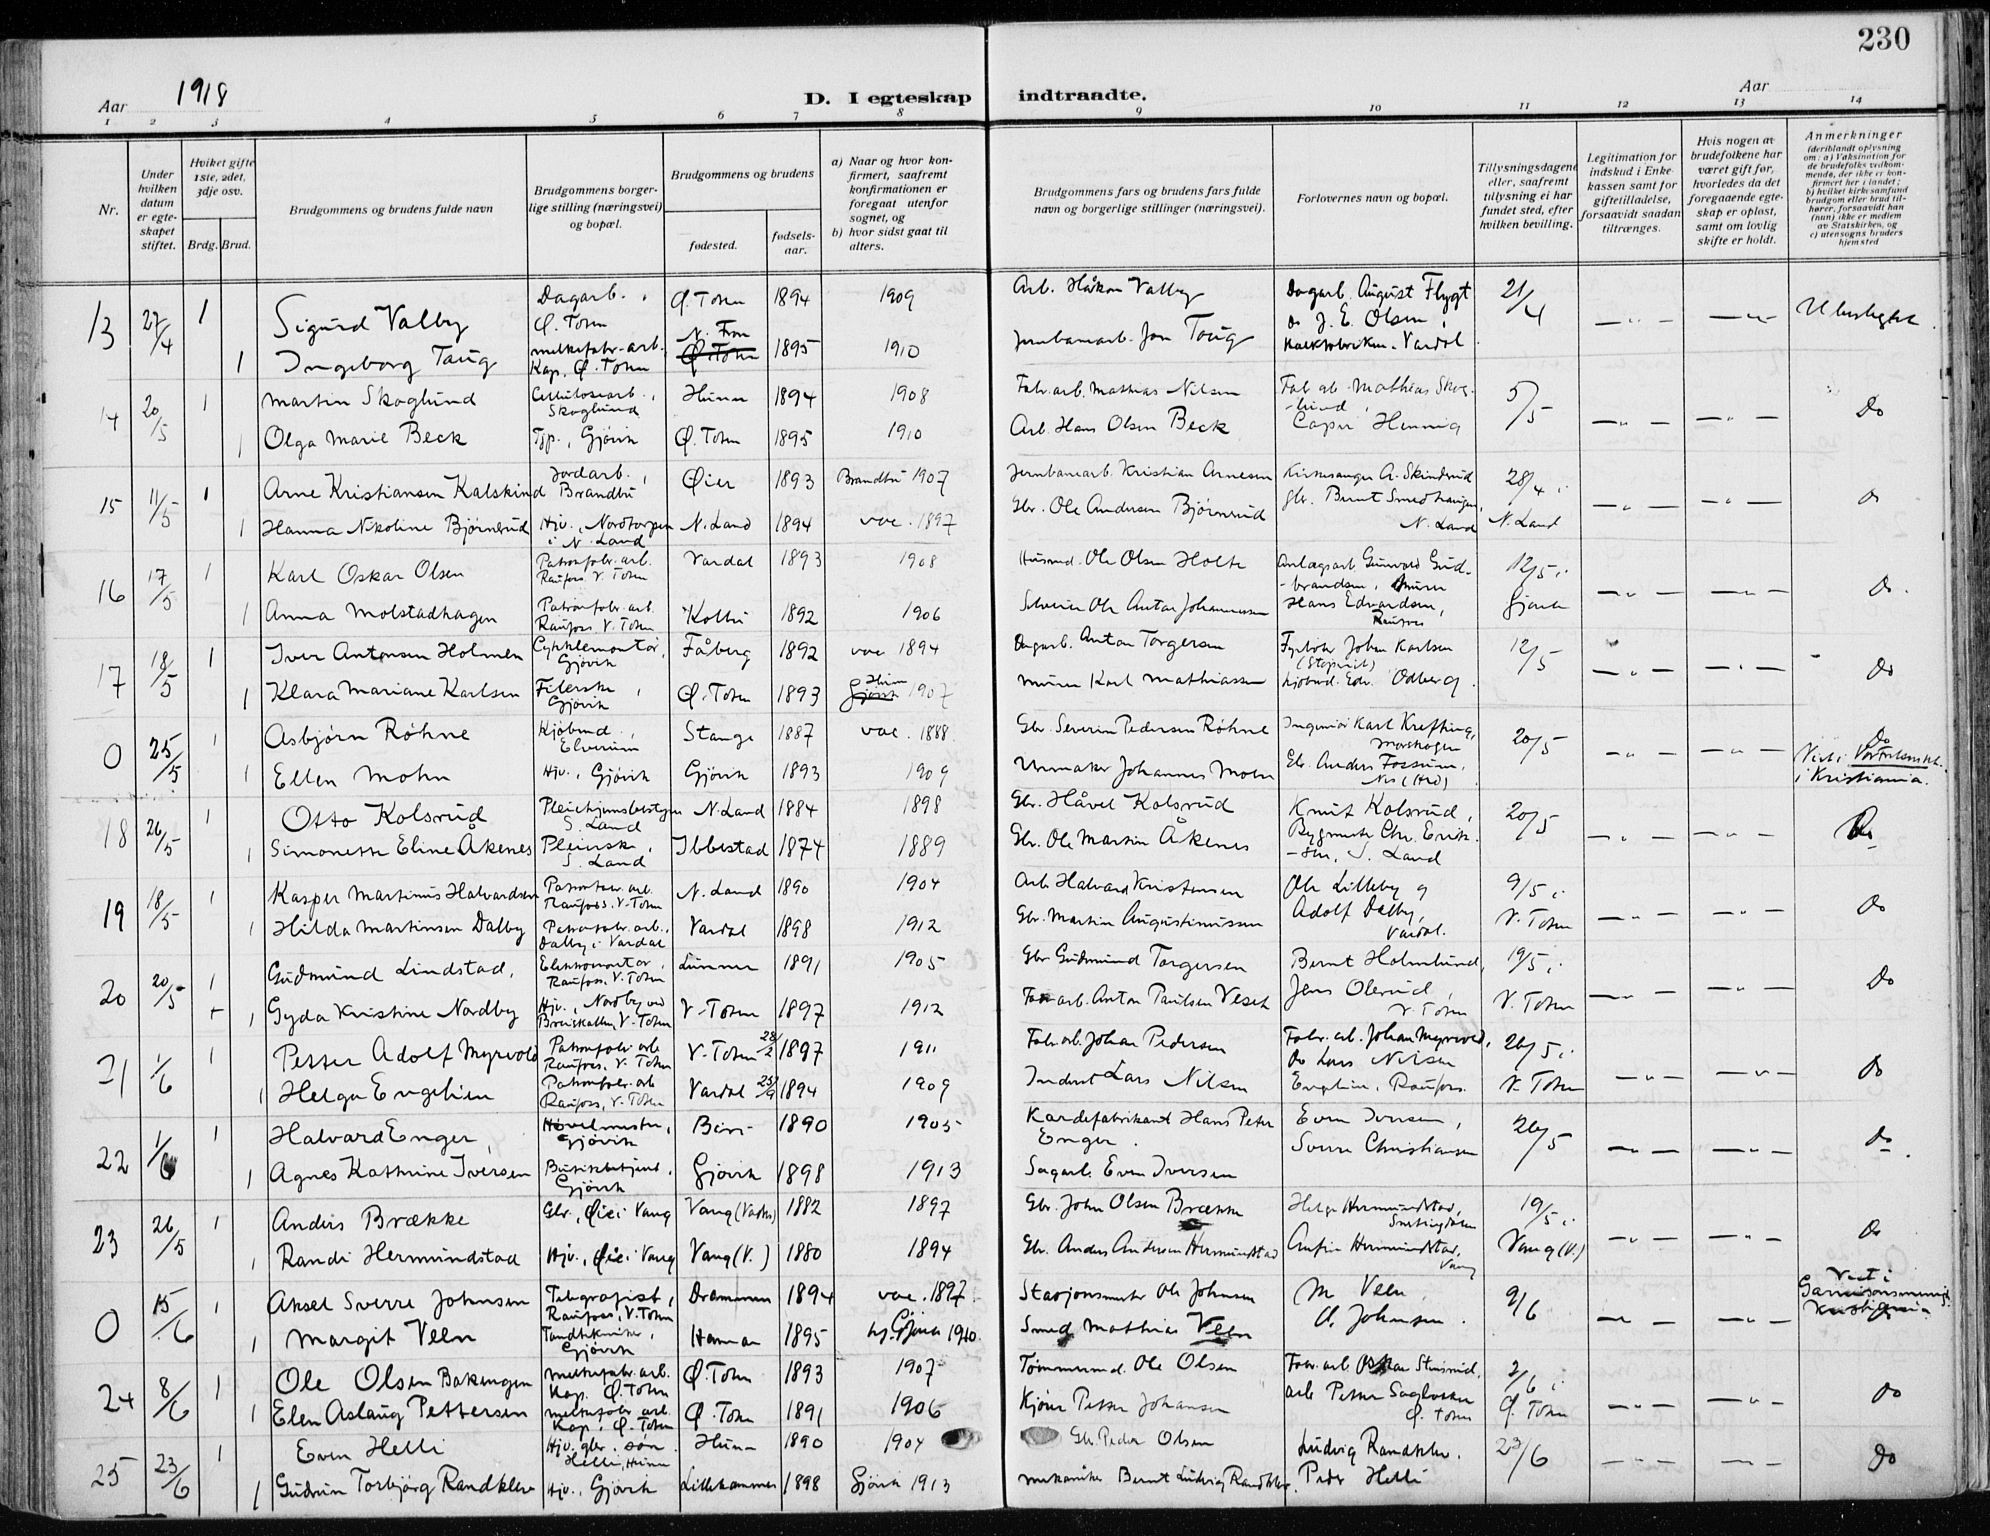 230
Aar 1918
D. I egteskap indtraadte.
Aar
1 2 3 4 5 6 7 8 9 10 11 12 13 14
Nr.
Under hvilken datum er egteskapet stiftet.
Hvilket gifte 1ste, 2det, 3dje osv.
Brdg. Brud.
Brudgommens og brudens fulde navn
Brudgommens borgerlige stilling (næringsvei) og bopæl.
Brudgommens og brudens
fødested.
fødselsaar.
a) Naar og hvor konfirmert, saafremt konfirmationen er foregaat utenfor sognet, og
b) hvor sidst gaat til alters.
Brudgommens fars og brudens fars fulde navn og borgerlige stillinger (næringsvei).
Forlovernes navn og bopæl.
Tillysningsdagene eller, saafremt tillysning ei har fundet sted, efter hvilken bevilling.
Legitimation for indskud i Enkekassen samt for giftetilladelse, forsaavidt saadan tiltrænges.
Hvis nogen av brudefolkene har været gift før, hvorledes da det foregaaende egteskap er opløst, samt om lovlig skifte er holdt.
Anmerkninger (deriblandt oplysning om: a) Vaksination for de brudefolks vedkommende, der ikke er konfirmert her i landet; b) hvilket kirkesamfund brudgom eller brud tilhører, forsaavidt han (hun) ikke er medlem av Statskirken, og c) utensogns bruders hjemsted
13 27/4 1 Sigurd Valby Dagarb., Ø. Toten Ø. Toten 1894 1909 Arb. Håkon Valby Dagarb. August Flygt 21/4 — „ — — „ — Ubeslegtet.
1 Ingeborg Taug melkefabr.arb. Kap, Ø. Toten Ø. Toten 1895 1910 Jernbanearb. Jon Taug do J. E. Olsen, Vardal
14 20/5 1 Martin Skoglund Cellulosearb., Skoglund Hunn 1894 1908 Fabr.arb. Mathias Nilsen Fab. arb. Mathias Skoglund, 5/5 — „ — — „ — Do
1 Olga Marie Beck Typ., Gjøvik Ø. Toten 1895 1910 Arb. Hans Olsen Beck Casper Hennig
15 11/5 1 Arne Kristiansen Kalskind Jordarb., Brandbu Øier 1893 Brandbu 1907 Jernbanearb. Kristian Arnesen Kirkesanger A. Skindrud 28/4 i — „ — — „ — Do
1 Hanna Nikoline Bjørnerud Hjv., Nordtorpen i N. Land N. Land 1894 vac. 1897 Gbr. Ole Andersen Bjørnrud gbr. Bernt Smedhaugen, N. Land N. Land
16 17/5 1 Karl Oskar Olsen Patronfabr. arb. Raufoss V. Toten Vardal 1893 1908 Husmd. Ole Olsen Holte Anlægsarb. Gunvald Gudbrandsen, 12/5 i — „ — — „ — Do.
1 Anna Molstadhagen Patronfabr. arb. Raufoss, V. Toten Kolbu 1892 1906 Ole Anton Johannessen Hans Edvardsen, Raufoss Gjøvik
17 18/5 1 Iver Antonsen Holmen Cyklemontør, Gjøvik Fåberg 1892 vac 1894 Dagarb. Anton Torgersen Fyrbøter Johan Karlsen 12/5 — „ — — „ — Do
1 Klara Mariane Karlsen Gjøvik Ø. Toten 1893 Hunn Gjøvik 1907 Murer Karl Mathiassen Edv. Ødberg.
0 25/5 1 Asbjørn Røhne Kjøbmd., Elverum Stange 1887 vac. 1888. Gbr. Severin Pedersen Røhne Ingeniør Karl Krefting, 20/5 „ — — „ — Do
1 Ellen Mohn Hjv., Gjøvik Gjøvik 1893 1909 Urmaker Johannes Mohn Gbr. Anders Fossum, Nes (Hed) Viet i Vor Frelserskk. i Kristiania.
18 26/5 1 Otto Kolsrud Pleiehjemsbestyrer S. Land N. Land 1884 1898 Gbr. Håvel Kolsrud Knut Kolsrud, 20/5 — „ — — „ — Do
1 Simonette Eline Åkenes Pleierske, S. Land Ibbestad 1874 1889 Gbr. Ole Martin Åkenes Bygmester Chr. Eriksen, S. Land
19 18/5 1 Kasper Martinius Halvardsen Patronfabr. arb. Raufoss, V. Toten N. Land 1890 1904 Arb. Halvard Kristensen Ole Lilleby og 9/5 i — „ — — „ — Do
1 Hilda Martinsen Dalby Patronfabr. arb., Dalby i Vardal Vardal 1898 1912 Gbr. Martin Augustinussen Adolf Dalby, Vardal. V. Toten
20 20/5 1 Gudmund Lindstad, Elektromontør, Raufoss, V. Toten Lunner 1891 1905 Gbr Gudmund Torgersen Bernt Holmlund, 19/5 i — „ — — „ — Do
1 Gyda Kristine Nordby Hjv., Nordby ved V. Toten V. Toten 1897 1912 Fabr.arb. Anton Paulsen Veset Jens Olerud, V. Toten V. Toten
21 1/6 1 Petter Adolf Myrvold Patronfabr. arb Raufoss, V. Toten V. Toten 28/2 1897 1911 Fabr. arb. Johan Pedersen Fabr. arb. Johan Myrvold, 26/5 i — „ — — „ — Do
1 Helga Engelien Patronfabr. arb Raufoss, V. Toten Vardal 25/9 1894 1909 Inderst Lars Nilsen do Lars Nilsen Engelien, Raufoss. V. Toten
22 1/6 1 Halvard Enger, Gjøvik Biri 1890 1905 Kardefabrikant Hans Peter Enger. Even Iversen, 26/5 — „ — — „ — Do.
1 Agnes Kathrine Iversen Butikkbetjent, Gjøvik Gjøvik 1898 1913 Sagarb. Even Iversen Sverre Christiansen
23 26/5 1 Anders Brække Gbr., Øie i Vang Vang (Valdres) 1882 1897 Gbr. John Olsen Brække Helge Hermundstad, Snertingdalen 19/5 i — „ — — „ — Do
1 Randi Hermundstad Hjv., Øie i Vang Vang (V.) 1880 1894 Gbr. Anders Andersen Hermundstad Hermundstad, Vang Vang (V.)
0 15/6 1 Aksel Sverre Johnsen Telegrafist, Raufoss, V. Toten Drammen 1894 vac. 1897. Stasjonsmester Ole Johnsen M Veen 9/6 — „ — — „ — Viet i Garnisonsmenigh. Kristiania
1 Margit Veen Tandtekniker, Gjøvik Hamar 1895 1910. Smed Mathias Veen O. Johnsen.
24 8/6 1 Ole Olsen Bakengen melkefabr. arb. Kap, Ø. Toten Ø. Toten 1893 1907 Tømmermd. Ole Olsen Fabr. arb Oskar 2/6 i — „ — — „ — Do
1 Elen Aslaug Pettersen melkefabr. arb. Kap, Ø. Toten Ø. Toten 1891 1906 Petter Johansen arb Petter Ø. Toten Ø. Toten
25 23/6 1 Even Helli Hjv. gbr. søn. Helli, Hunn Hunn 1890 1904 Gbr. Peder Olsen Ludvig Randklev. 23/6 — „ — — „ — Do
1 Gudrun Torbjørg Randklev Hjv., Gjøvik Lillehammer 1898 Gjøvik 1913 mekaniker Bernt Ludvig Randklev. Peder Helli